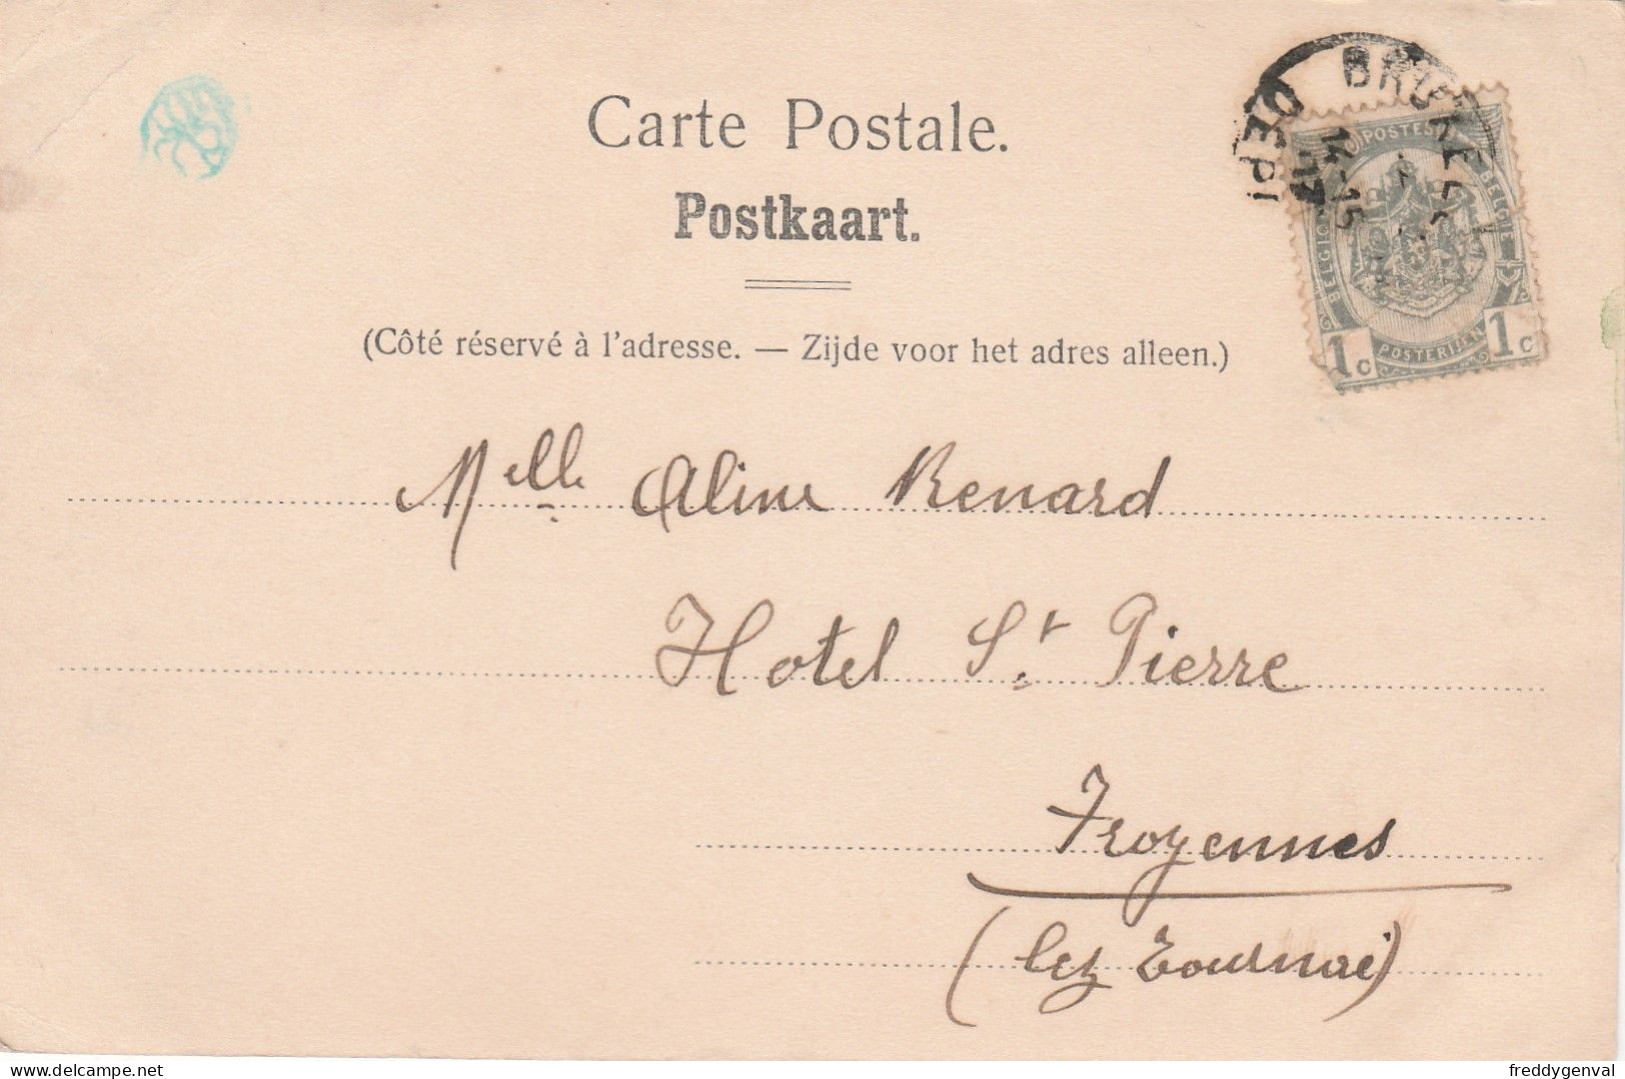 Carte Postale.
Postkaart.
(Côté réservé à l'adresse. — Zijde voor het adres alleen.)
BRUXELLES
14-15
17
DEPT
POSTES
BELGIQUE
BELGIË
POSTERIJEN
1c 1c
Melle Aline Renard
Hotel St Pierre
Froyennes
(lez Tournai)
delcampe.net
freddygenval